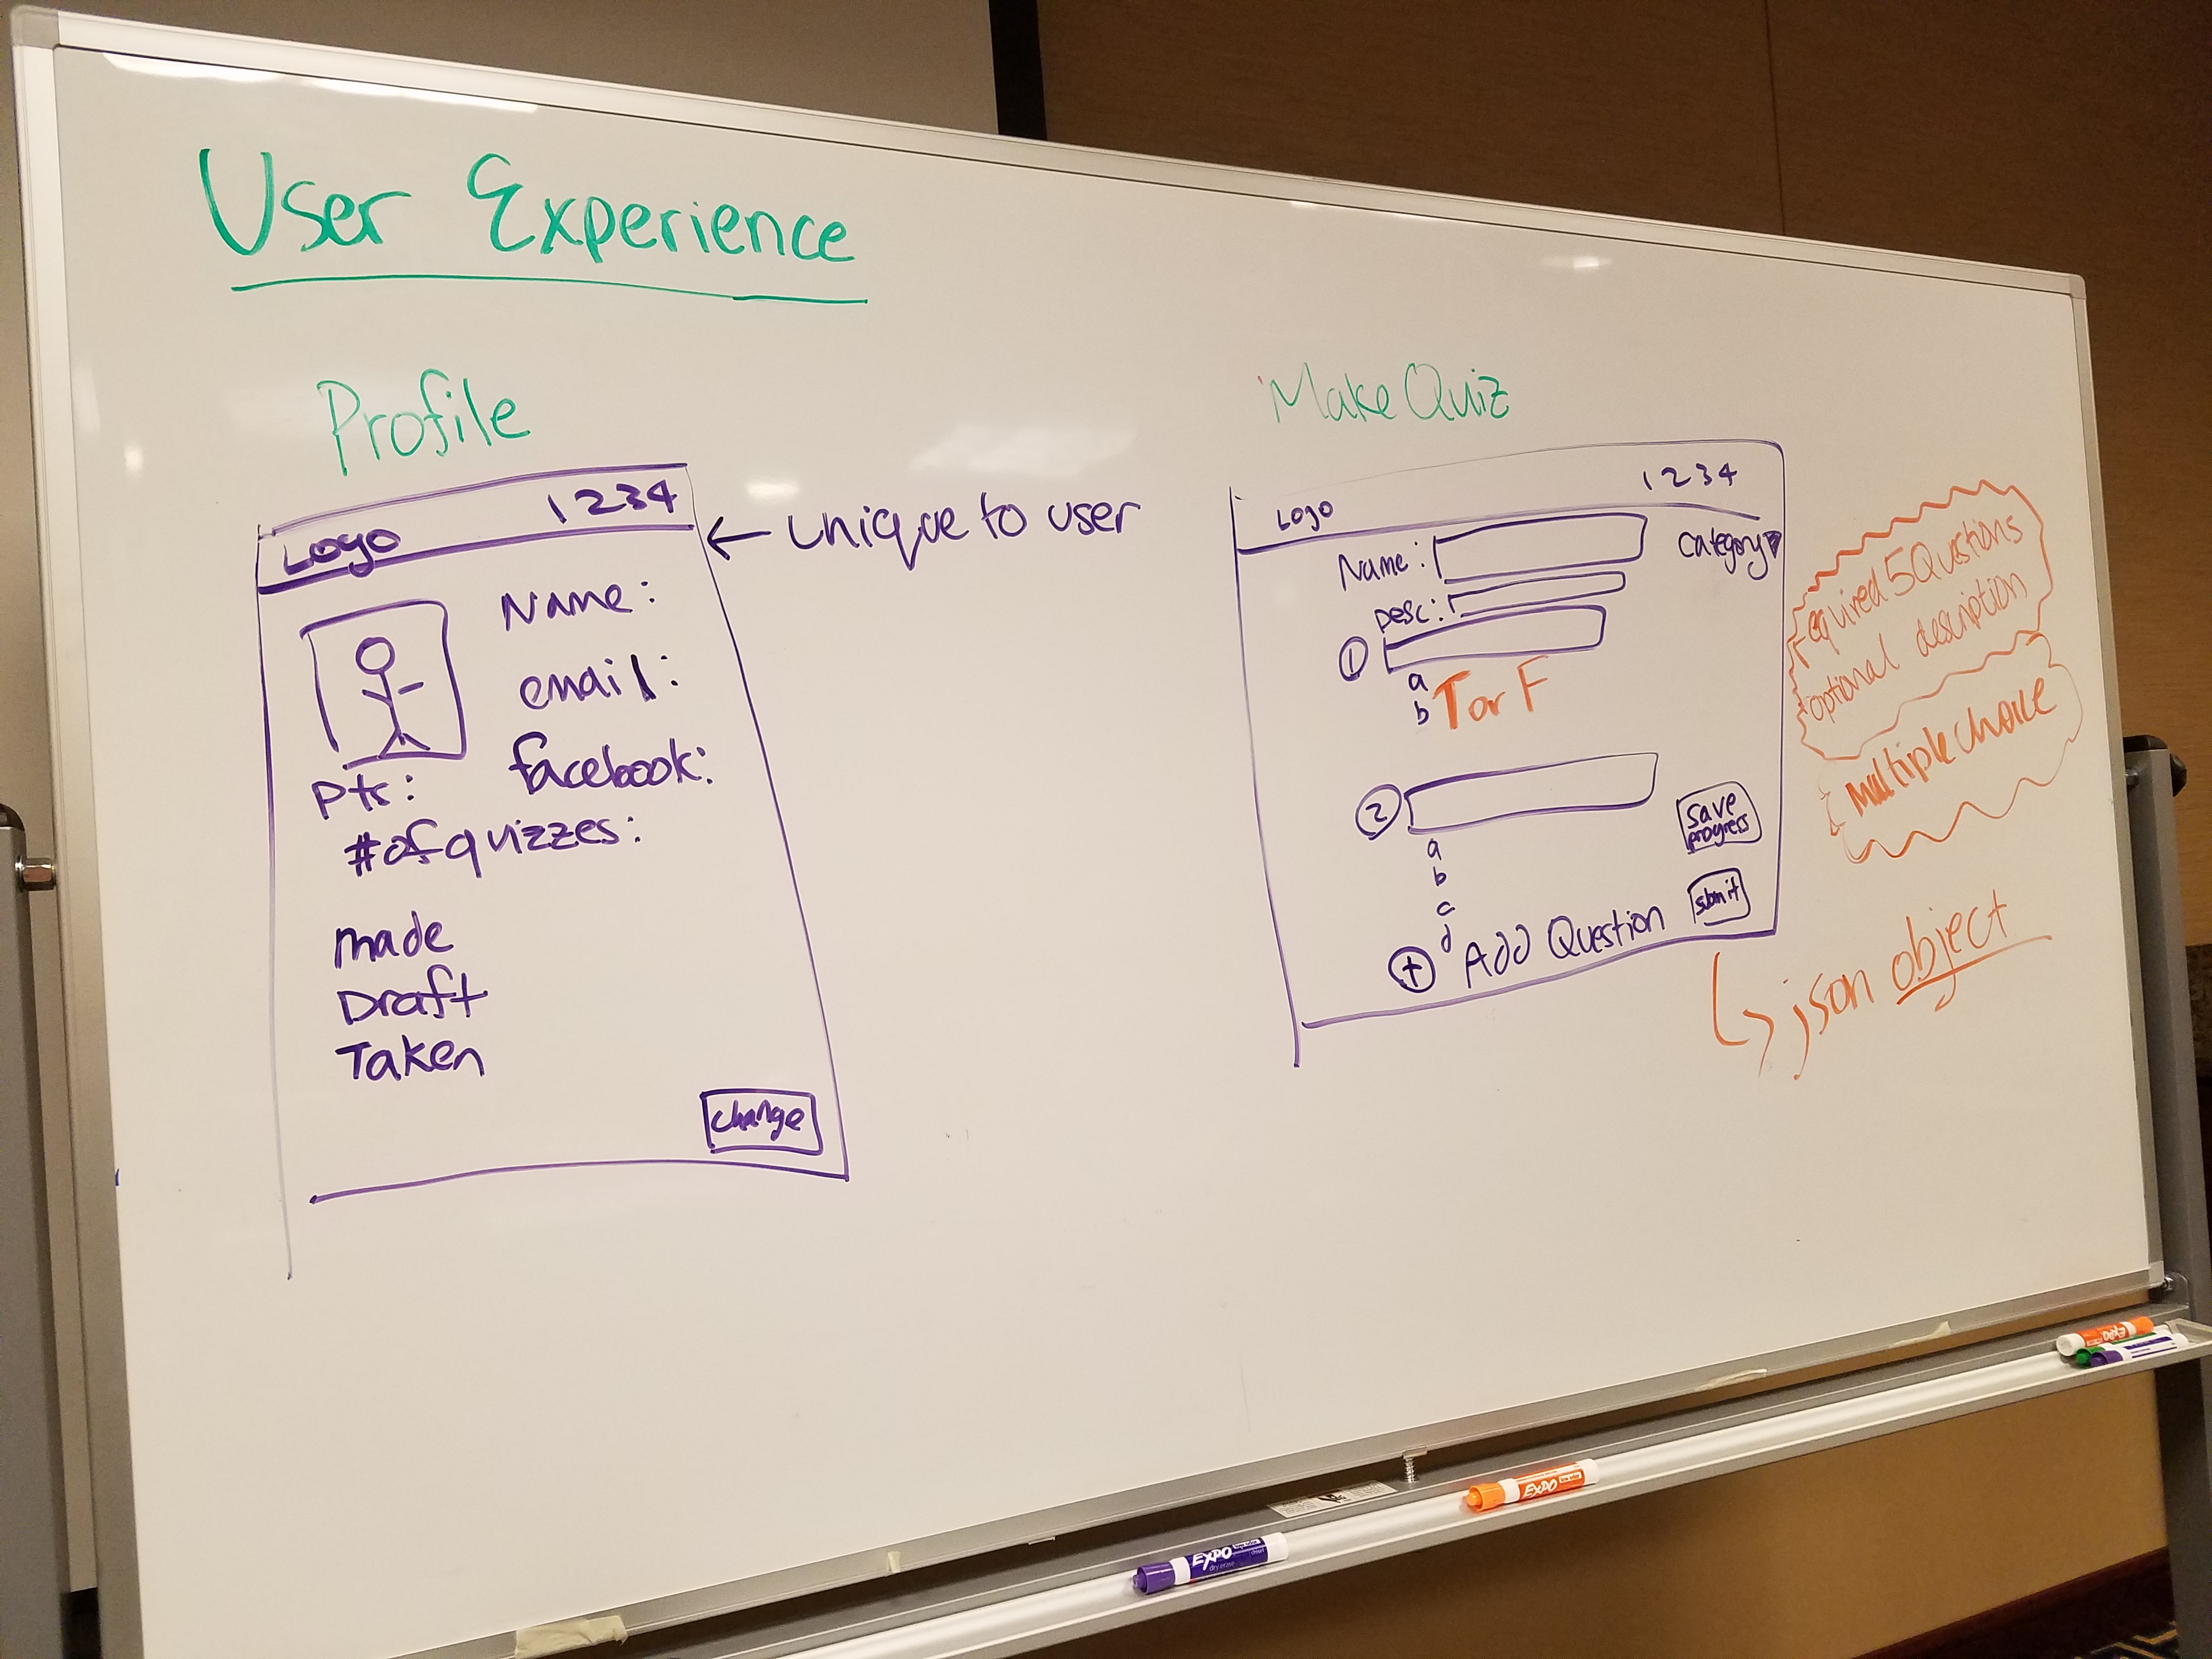 User Experience
Profile
1234
Logo
← unique to user
Name:
email:
facebook:
pts:
#of quizzes:
made
Draft
Taken
change
Make Quiz
1234
Logo
Name:
category
Desc:
1
a
b
T or F
2
a
b
c
d
save
progress
submit
+ Add Question
required 5 Questions
optional description
Multiple choice
json object
EXPO
EXPO
EXPO